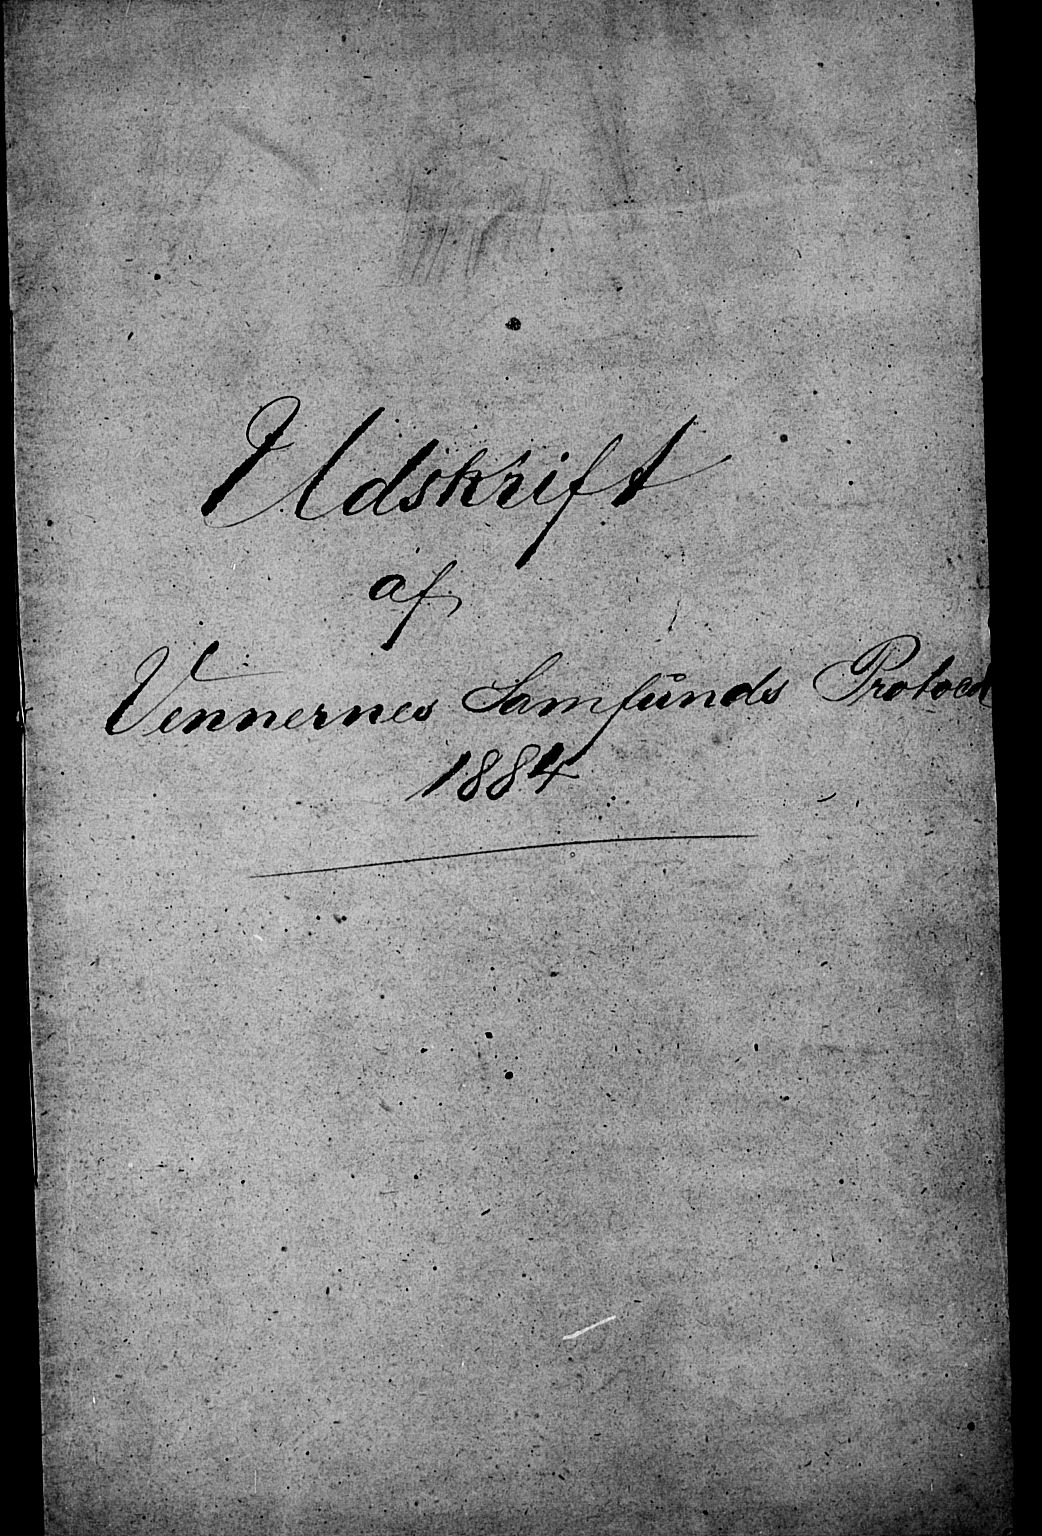 Udskrift
af
Vennernes Samfunds Protocol
1884